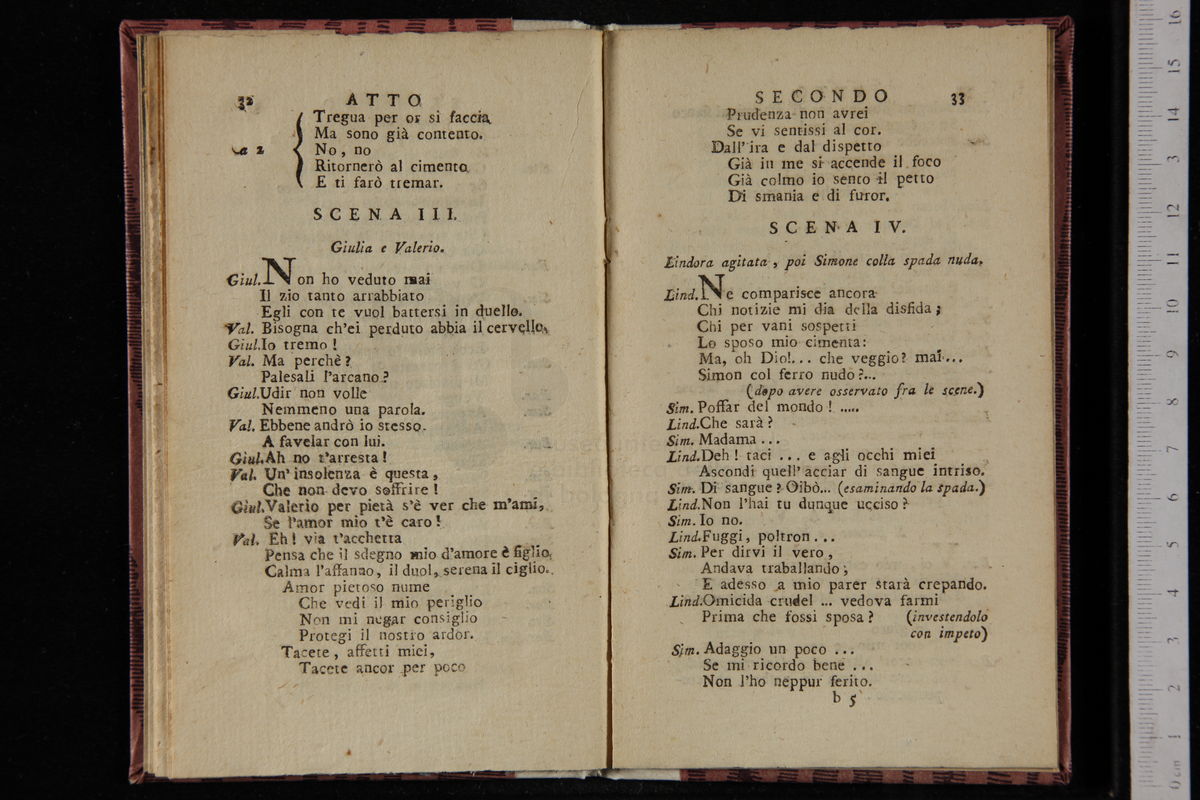 32 ATTO
Tregua per or si faccia
Ma sono già contento.
a 2 No, no
Ritornerò al cimento
E ti farò tremar.
SCENA III.
Giulia e Valerio.
Giul. Non ho veduto mai
Il zio tanto arrabbiato
Egli con te vuol battersi in duello.
Val. Bisogna ch'ei perduto abbia il cervello.
Giul. Io tremo!
Val. Ma perchè?
Palesali l'arcano?
Giul. Udir non volle
Nemmeno una parola.
Val. Ebbene andrò io stesso.
A favelar con lui.
Giul. Ah no t'arresta!
Val. Un' insolenza è questa,
Che non devo soffrire!
Giul. Valerio per pietà s'è ver che m'ami,
Se l'amor mio t'è caro!
Val. Eh! via t'acchetta
Pensa che il sdegno mio d'amore è figlio.
Calma l'affanno, il duol, serena il ciglio.
Amor pietoso nume
Che vedi il mio periglio
Non mi negar consiglio
Protegi il nostro ardor.
Tacete, affetti miei,
Tacete ancor per poco
SECONDO 33
Prudenza non avrei
Se vi sentissi al cor.
Dall' ira e dal dispetto
Già in me si accende il foco
Già colmo io sento il petto
Di smania e di furor.
SCENA IV.
Lindora agitata, poi Simone colla spada nuda.
Lind. Ne comparisce ancora
Chi notizie mi dia della disfida;
Chi per vani sospetti
Lo sposo mio cimenta:
Ma, oh Dio!... che veggio? mai...
Simon col ferro nudo?...
(dopo avere osservato fra le scene.)
Sim. Poffar del mondo! .....
Lind. Che sarà?
Sim. Madama ...
Lind. Deh! taci ... e agli occhi miei
Ascondi quell' acciar di sangue intriso.
Sim. Di sangue? Oibò... (esaminando la spada.)
Lind. Non l'hai tu dunque ucciso?
Sim. Io no.
Lind. Fuggi, poltron ...
Sim. Per dirvi il vero,
Andava traballando;
E adesso a mio parer starà crepando.
Lind. Omicida crudel ... vedova farmi
Prima che fossi sposa? (investendolo
con impeto)
Sim. Adaggio un poco ...
Se mi ricordo bene ...
Non l'ho neppur ferito.
b 5